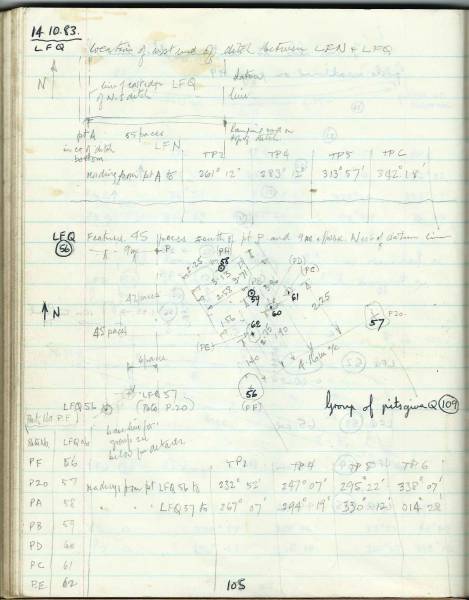 14.10.83.
LFQ
location of west end of ditch between LFN & LFQ
N
line of east edge LFQ
of N-S ditch
datum
line
pt A 55 paces LFN
in c. of ditch
bottom
TP2 TP4 TP5 TPC
reading from pt A to 261° 12' 283° 2' 313° 57' 342° 18'
LFQ
56
Feature 45 paces south of pt P and 9 paces West of datum line
9 P
PH
58
(PD)
(PC)
59
61
60
62
(PE)
N
42 paces
45 paces
2.25
P20.
57
6 paces
LFQ 57
(Pole P.20)
56
(PF)
Group of pits given Q 109
LFQ 56
baseline for
group see
below for details
Pit No LFQ no
PF 56
P20 57
PA 58
PB 59
PD 60
PC 61
PE 62
TP2 TP4 TP5 TP6
readings from pt LFQ 56 to 232° 52' 247° 07' 295° 22' 338° 07'
" " LFQ 57 to 267° 07' 294° 19' 330° 12' 014° 28'
105